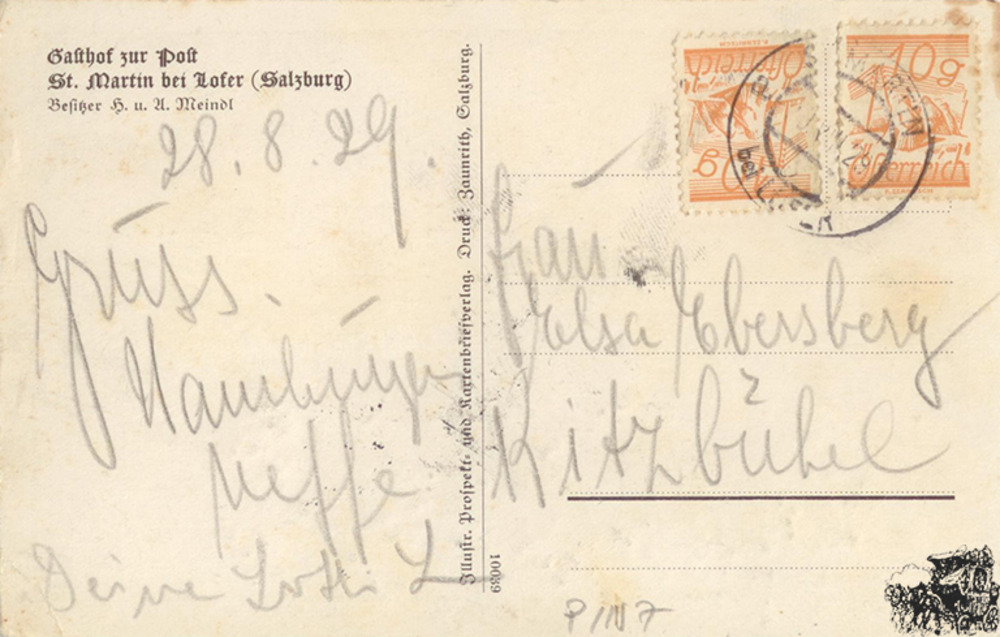 Gasthof zur Post
St. Martin bei Lofer (Salzburg)
Besitzer H. u. A. Meindl
28.8.29.
Gruss.
Hamburger
Neffe
Deine Lotti L
Illustr. Prospekt- und Kartenbriefverlag. Druck: Zaunrith, Salzburg.
10039
10g
Österreich
10g
Österreich
Frau
Elsa Ebersberg
Kitzbühel
P/N7